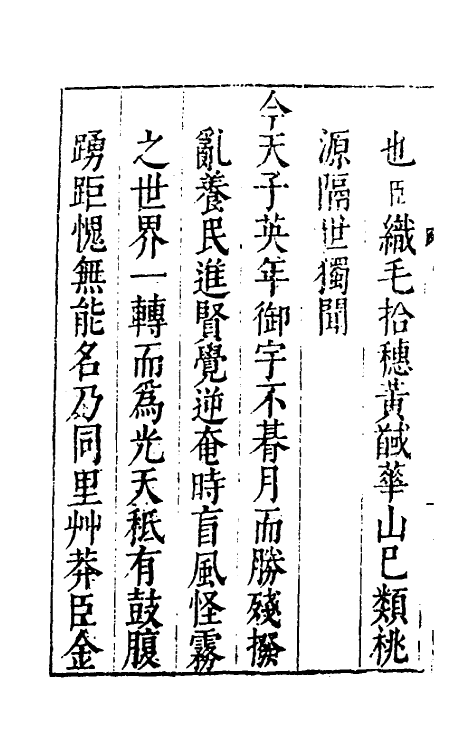 也臣織毛拾穗黃馘華山已類桃
源隔世獨聞
今天子英年御宇不朞月而勝殘撥
亂養民進賢覺逆奄時盲風怪霧
之世界一轉而為光天秪有鼓腹
踴距愧無能名乃同里艸莽臣金